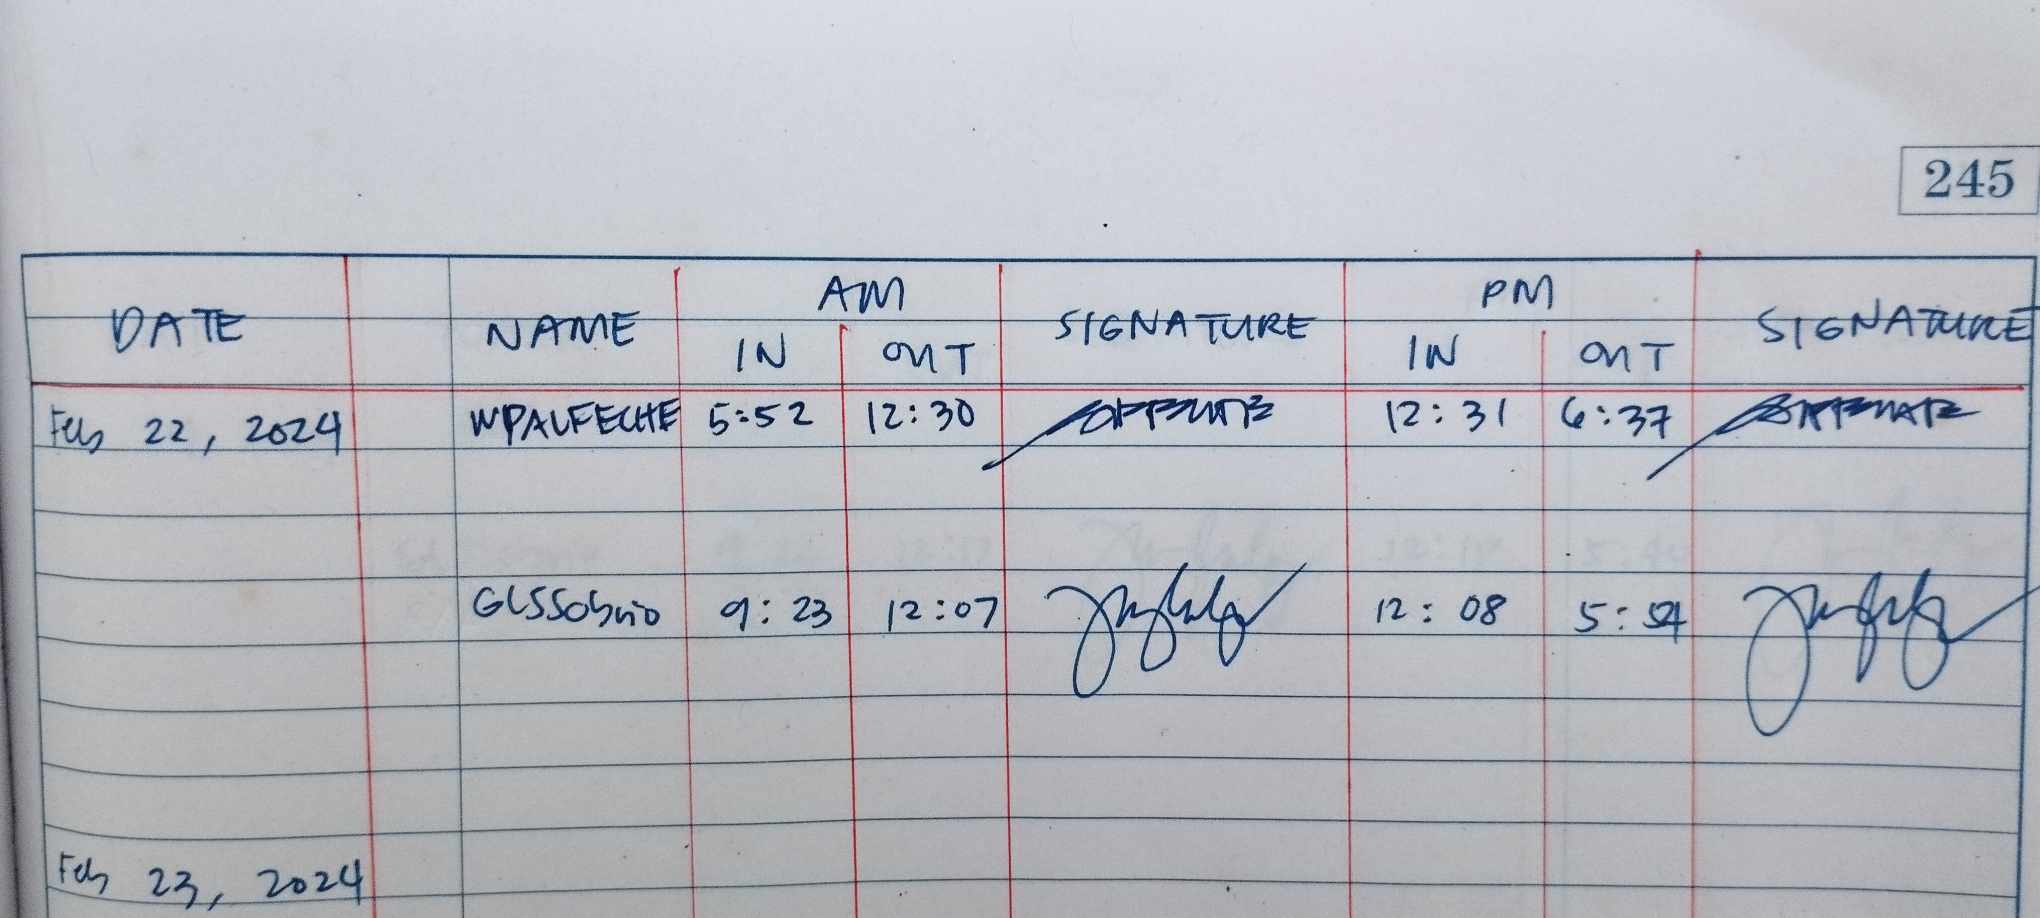 245
DATE NAME AM SIGNATURE PM SIGNATURE
IN OUT IN OUT
Feb 22, 2024 WPALFECHE 5:52 12:30 12:31 6:37
GLSSobrio 9:23 12:07 12:08 5:54
Feb 23, 2024